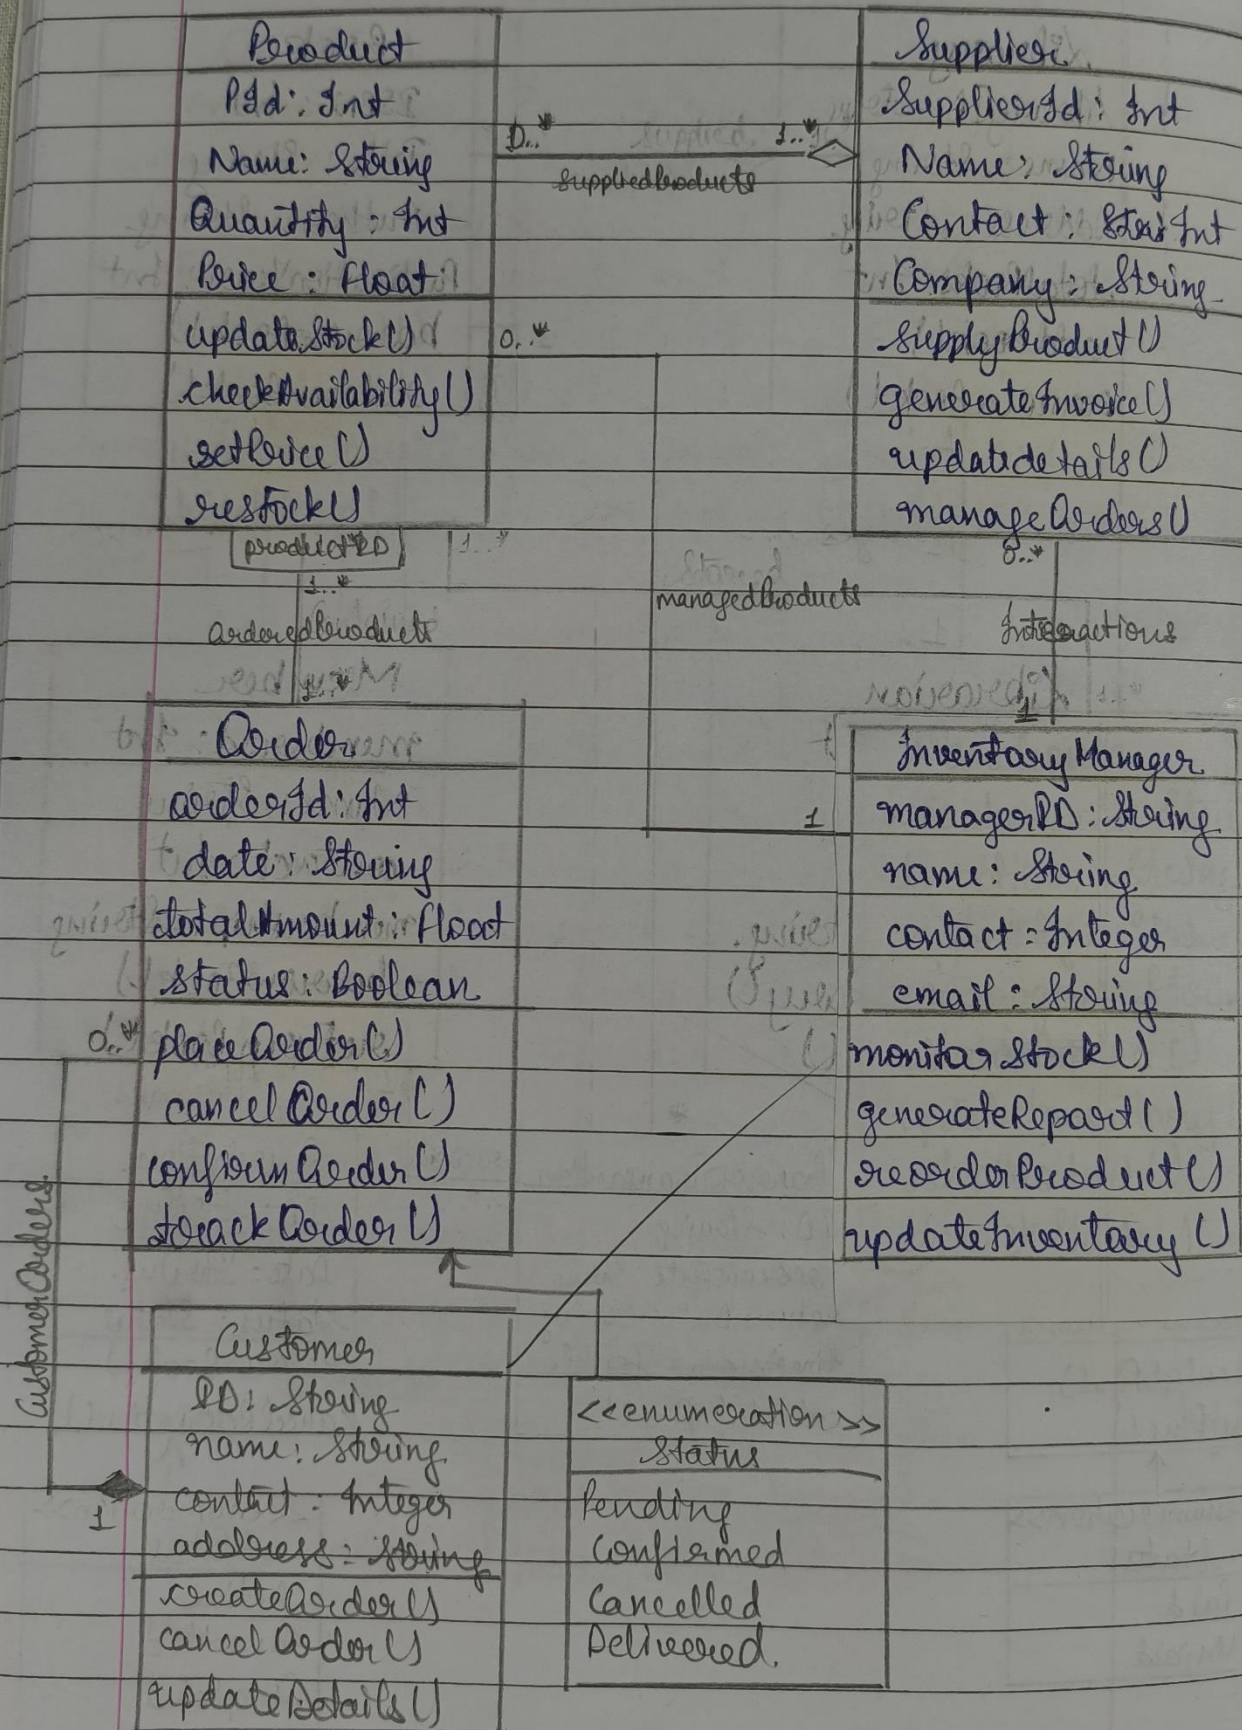 Product
PId: Int
Name: String
Quantity: Int
Price: Float
updateStock()
checkAvailability()
setPrice()
restock()
productID
0..*
1..*
suppliedProducts
Supplier
SupplierId: Int
Name: String
Contact: Int
Company: String
supplyProduct()
generateInvoice()
updatedetails()
manageOrders()
0..*
managedProducts
1
1..*
1..*
orderedProducts
1..*
0..*
Interactions
1
Order
orderId: Int
date: String
totalAmount: Float
status: Boolean
placeOrder()
cancelOrder()
confirmOrder()
trackOrder()
InventoryManager
managerID: String
name: String
contact: Integer
email: String
monitorStock()
generateReport()
reorderProduct()
updateInventory()
0..*
CustomerOrders
1
Customer
ID: String
name: String
contact: Integer
address: String
createOrder()
cancelOrder()
updateDetails()
<<enumeration>>
Status
Pending
Confirmed
Cancelled
Delivered.